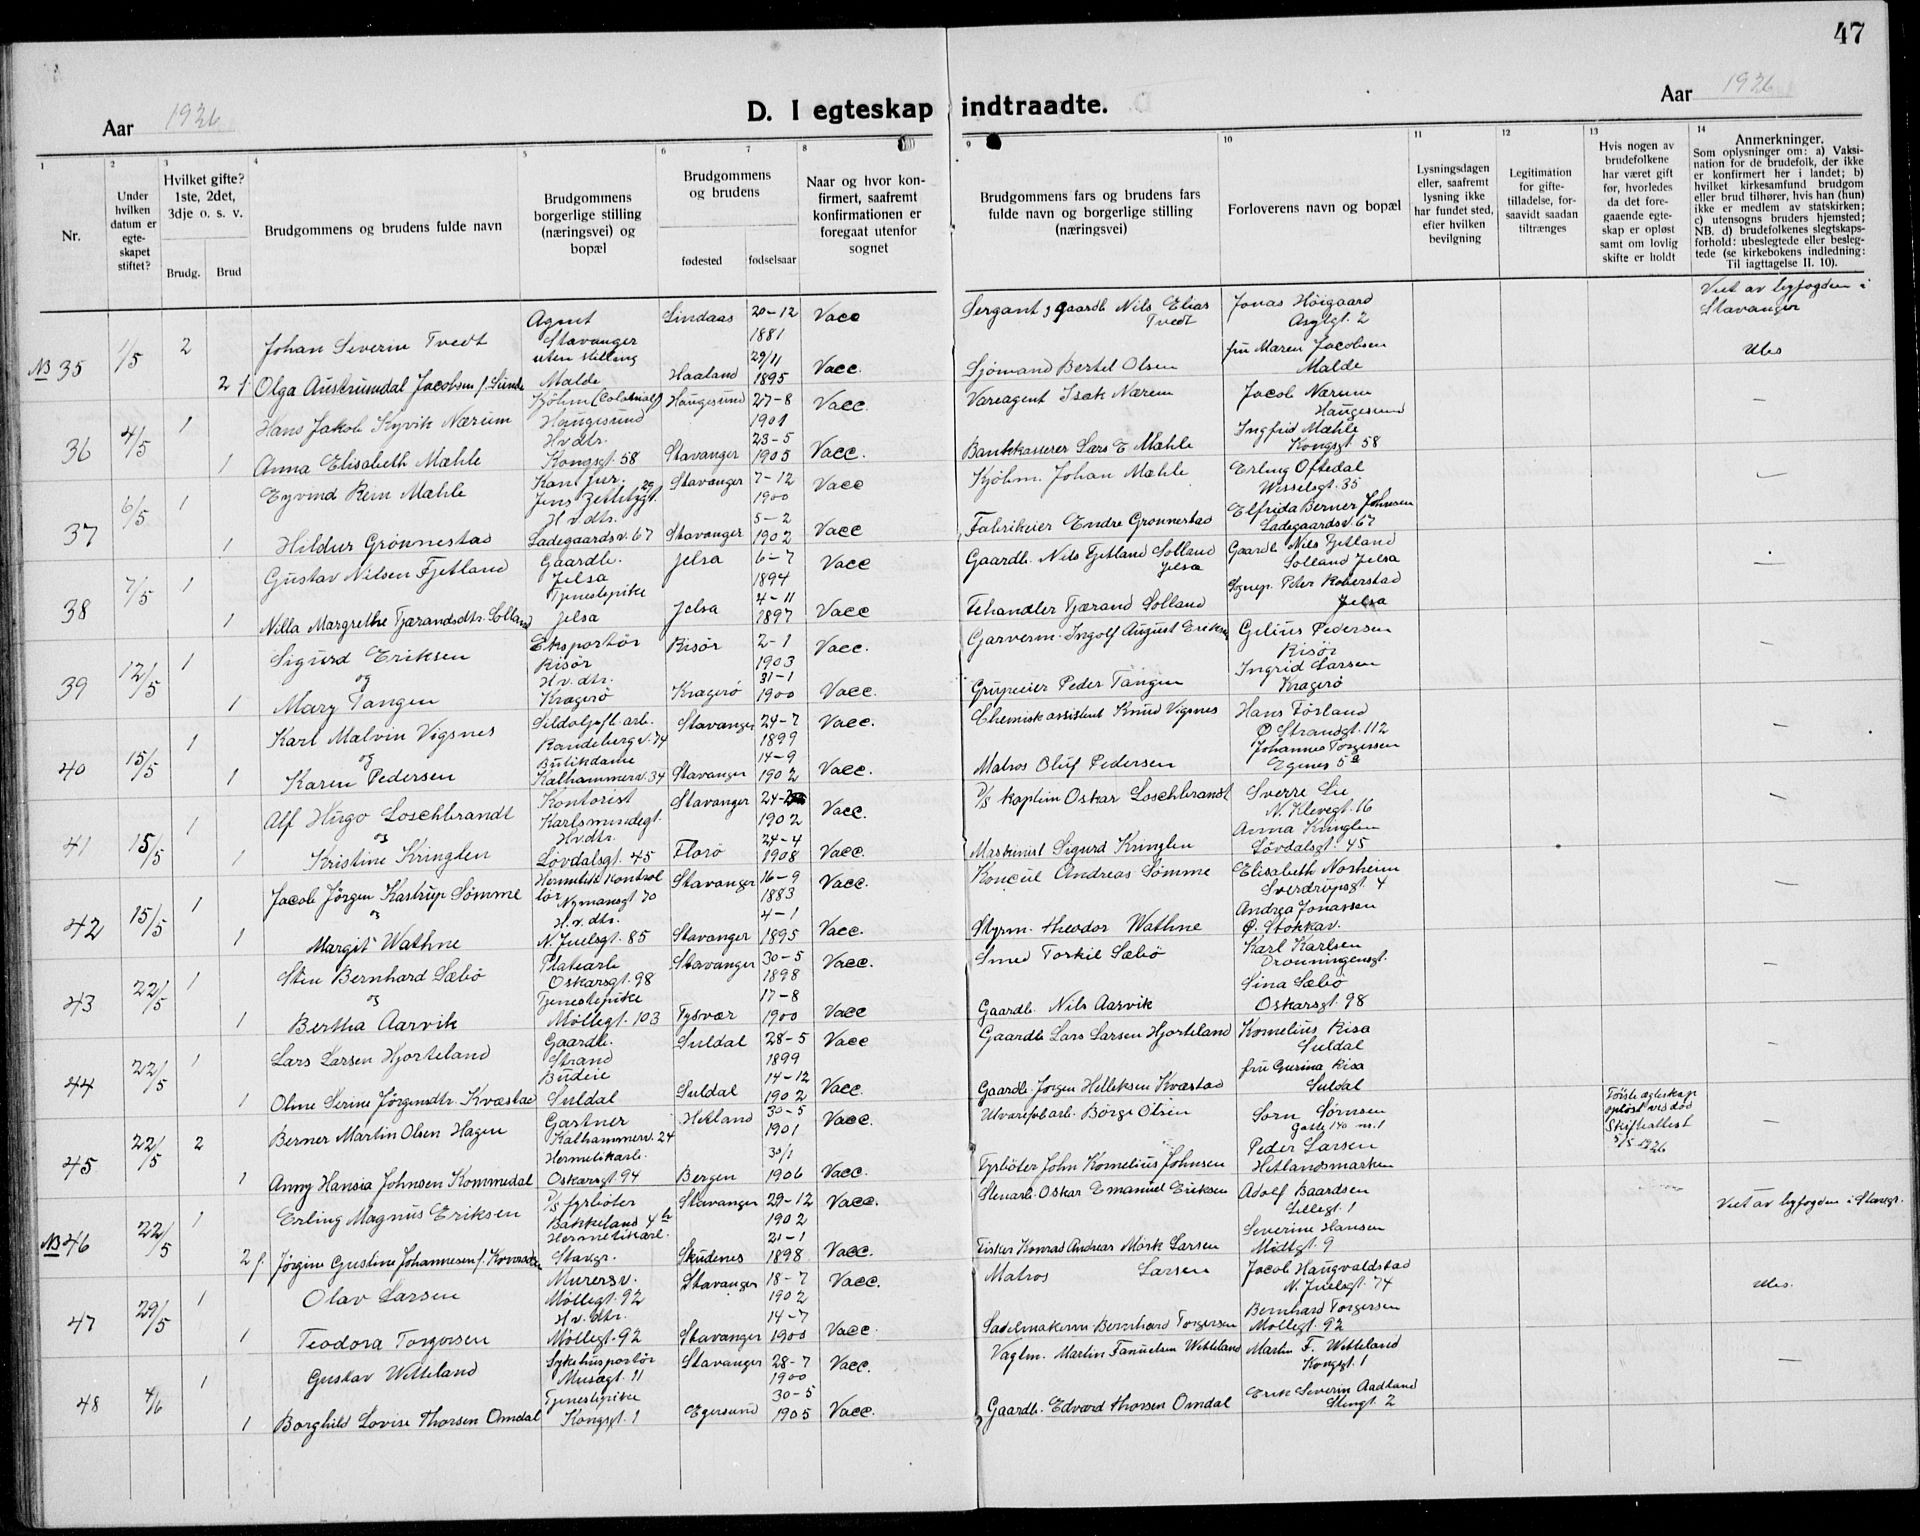 47
Aar 1926
D. I egteskap indtraadte.
Aar 1926
1
2
3
4
5
6
7
8
9
10
11
12
13
14
Nr.
Under hvilken datum er egteskapet stiftet?
Hvilket gifte? 1ste, 2det, 3dje o. s. v.
Brudg.
Brud
Brudgommens og brudens fulde navn
Brudgommens borgerlige stilling (næringsvei) og bopæl
Brudgommens og brudens
fødested
fødselsaar
Naar og hvor konfirmert, saafremt konfirmationen er foregaat utenfor sognet
Brudgommens fars og brudens fars fulde navn og borgerlige stilling (næringsvei)
Forloverens navn og bopæl
Lysningsdagen eller, saafremt lysning ikke har fundet sted, efter hvilken bevilgning
Legitimation for giftetilladelse, forsaavidt saadan tiltrænges
Hvis nogen av brudefolkene har været gift før, hvorledes da det foregaaende egteskap er opløst samt om lovlig skifte er holdt
Anmerkninger.
Som oplysninger om: a) Vaksination for de brudefolk, der ikke er konfirmert her i landet; b) hvilket kirkesamfund brudgom eller brud tilhører, hvis han (hun) ikke er medlem av statskirken; c) utensogns bruders hjemsted; NB. d) brudefolkenes slegtskapsforhold: ubeslegtede eller beslegtede (se kirkebokens indledning: Til iagttagelse II. 10).
NB 35 1/5 2 Johan Severin Tvedt Agent Stavanger Lindaas 20-12 1881 Vacc Sergant og gaardb Nils Elias Tvedt Jonas Höigaard Asylgt. 2 Viet av byfogden i Stavanger
2 1 Olga Austrumdal Jacobsen f. Sunde uten stilling Malde Haaland 29/11 1895 Vacc. Sjömand Bertel Olsen fru Maren Jacobsen Malde Ubes
36 4/5 1 Hans Jakob Kyvik Nærum Kjöbm (Colonial) Haugesund Haugesund 27-8 1901 Vacc. Vareagent Isak Nærem Jacob Nærum Haugesund —
1 Anna Elisabeth Mæhle Hv dtr. Kongsgt. 58 Stavanger 23-5 1905 Vacc. Bankkasserer Lars E Mæhle Ingfrid Mæhle Kongsgt 58
37 6/5 1 Eyvind Rein Mæhle Kan. Jur. Jens Zetlitzgt. 29 Stavanger 7-12 1900 Vacc Kjöbm. Johan Mæhle Erling Oftedal Wesselsgt. 35 —
1 Hildur Grönnestad H v dtr. Ladegaardsv. 67 Stavanger 5-2 1902 Vacc Fabrikeier Endre Grönnestad Elfrida Berner Johnsen Ladegaardsv. 67
38 7/5 1 Gustav Nilsen Fjetland Gaardb. Jelsa Jelsa 6-7 1894 Vacc Gaardb. Nils Fjetland Solland Jelsa Gaardb Nils Fjetland Solland Jelsa —
1 Nilla Margrethe Tjærandsdtr. Solland Tjenestepike Jelsa Jelsa 4-11 1897 Vacc Fehandler Tjærand Solland Sognep. Peter Roberstad Jelsa
39 12/5 1 Sigurd Eriksen Eksportör Risör Risör 2-1 1903 Vacc. Garverm. Ingolf August Eriksen Gilius Pedersen Risör —
og
1 Mary Tangen H.v.dtr. Kragerö Kragerö 31-1 1900 Vacc. Grubeeier Peder Tangen Ingrid Larsen Kragerö
40 15/5 1 Karl Malvin Vigsnes Sildoljeft. arb. Randebergv. 74 Stavanger 24-7 1899 Vacc. Chemiskassistent Knud Vigsnes Hans Förland Ö Strandgt. 112 —
og
1 Karen Pedersen Butikdame Kalhammerv. 34 Stavanger 14-9 1902 Vacc. Matros Oluf Pedersen Johannes Torgersen Egenes 5a
41 15/5 1 Alf Hugo Loschbrandt Kontorist Karlsmindegt. Stavanger 24- 1902 Vacc. P/s kaptein Oskar Loschbrandt Sverre Lie N. Klevegt. 16 —
og
1 Kristine Kringlen Hv.dtr. Lövdalsgt. 45 Florö 24-4 1908 Vacc. Maskinist Sigurd Kringlen Anna Kringlen Lövdalsgt. 45
42 15/5 1 Jacob Jörgen Kastrup Sömme Hermetikkontrollör Nymansgt 70 Stavanger 16-9 1883 Vacc. Koncul Andreas Sömme Elisabeth Norheim Sverdrupsgt 4 —
og
1 Margit Wathne H.v.dtr. N. Juelsgt. 85 Stavanger 4-1 1895 Vacc. Styrm. Theodor Wathne Andrea Jonassen Ö. Stokkav.
43 22/5 1 Sten Bernhard Sæbö Platearb Oskarsgt. 98 Stavanger 30-5 1898 Vacc. Smed Torkil Sæbö Karl Karlsen Dronningensgt. —
og
1 Bertha Aarvik Tjenestepike Möllegt. 103 Tysvær 17-8 1900 Vacc Gaardb. Nils Aarvik Sina Sæbö Oskarsgt. 98
44 22/5 1 Lars Larsen Hjorteland Gaardb. Strand Suldal 28-5 1899 Vacc Gaardb Lars Larsen Hjorteland Kornelius Risa Suldal —
1 Oline Serine Jörgensdtr. Kvæstad Budeie Suldal Suldal 14-12 1902 Vacc. Gaardb. Jörgen Helleksen Kvæstad fru Gurina Risa Suldal
45 22/5 2 Berner Martin Olsen Hagen Gartner Kalhammerv. 24 Hetland 30-5 1901 Vacc. Ulvarefab.arb. Börge Olsen Sörn Sörnsen Gate 140 nr. 1 Förste egteskap oplöst ved död Skifteattest 5/5 1926 —
1 Anny Hansia Johnsen Kommedal Hermetikarb. Oskarsgt 94 Bergen 30/1 1906 Vacc. Fyrböter John Kornelius Johnsen Peder Larsen Hetlandsmarken
NB 46 22/5 1 Erling Magnus Eriksen P/s fyrböter Bakkeland 4 b Stavanger 29-12 1902 Vacc. Stenarb. Oskar Emanuel Eriksen Adolf Baardsen Lillegt. 1 Viet av byfogden i Stavgr.
2 f. Jörgine Gustine Johannesen f. Hermetikarb. Stavgr. Skudenes 21-1 1898 Vacc. Fisker Konrad Andreas Mörk Larsen Severine Hansen Midtgt. 9
47 29/5 1 Olav Larsen Murersv. Möllegt. 92 Stavanger 18-7 1902 Vacc. Matros Larsen Jacob Haugvaldstad N. Juelsgt. 74 Ubes.
1 Teodora Torgersen H.v.dtr. Möllegt. 92 Stavanger 14-7 1900 Vacc. Sadelmakerm Bernhard Torgersen Bernhard Torgersen Möllegt. 92
48 4/6 1 Gustav Wetteland Sykehusportör Musegt. 11 Stavanger 28-7 1900 Vacc. Vagtm. Martin Fanuelsen Wetteland Martin F. Wetteland Kongsgt. 1 —
1 Borghild Lovise Thorsen Omdal Tjenestepike Kongsgt. 1 Egersund 30-5 1905 Vacc. Gaardb. Edvard Thorsen Omdal Erik Severin Aadland Stengt. 2